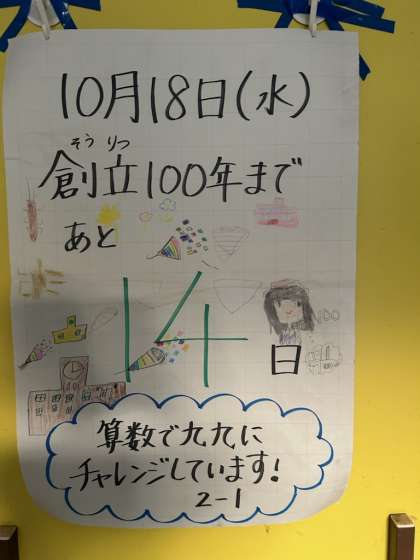 10月18日(水)
そうりつ
創立100年まで
あと
14日
100
算数で九九に
チャレンジしています!
2-1